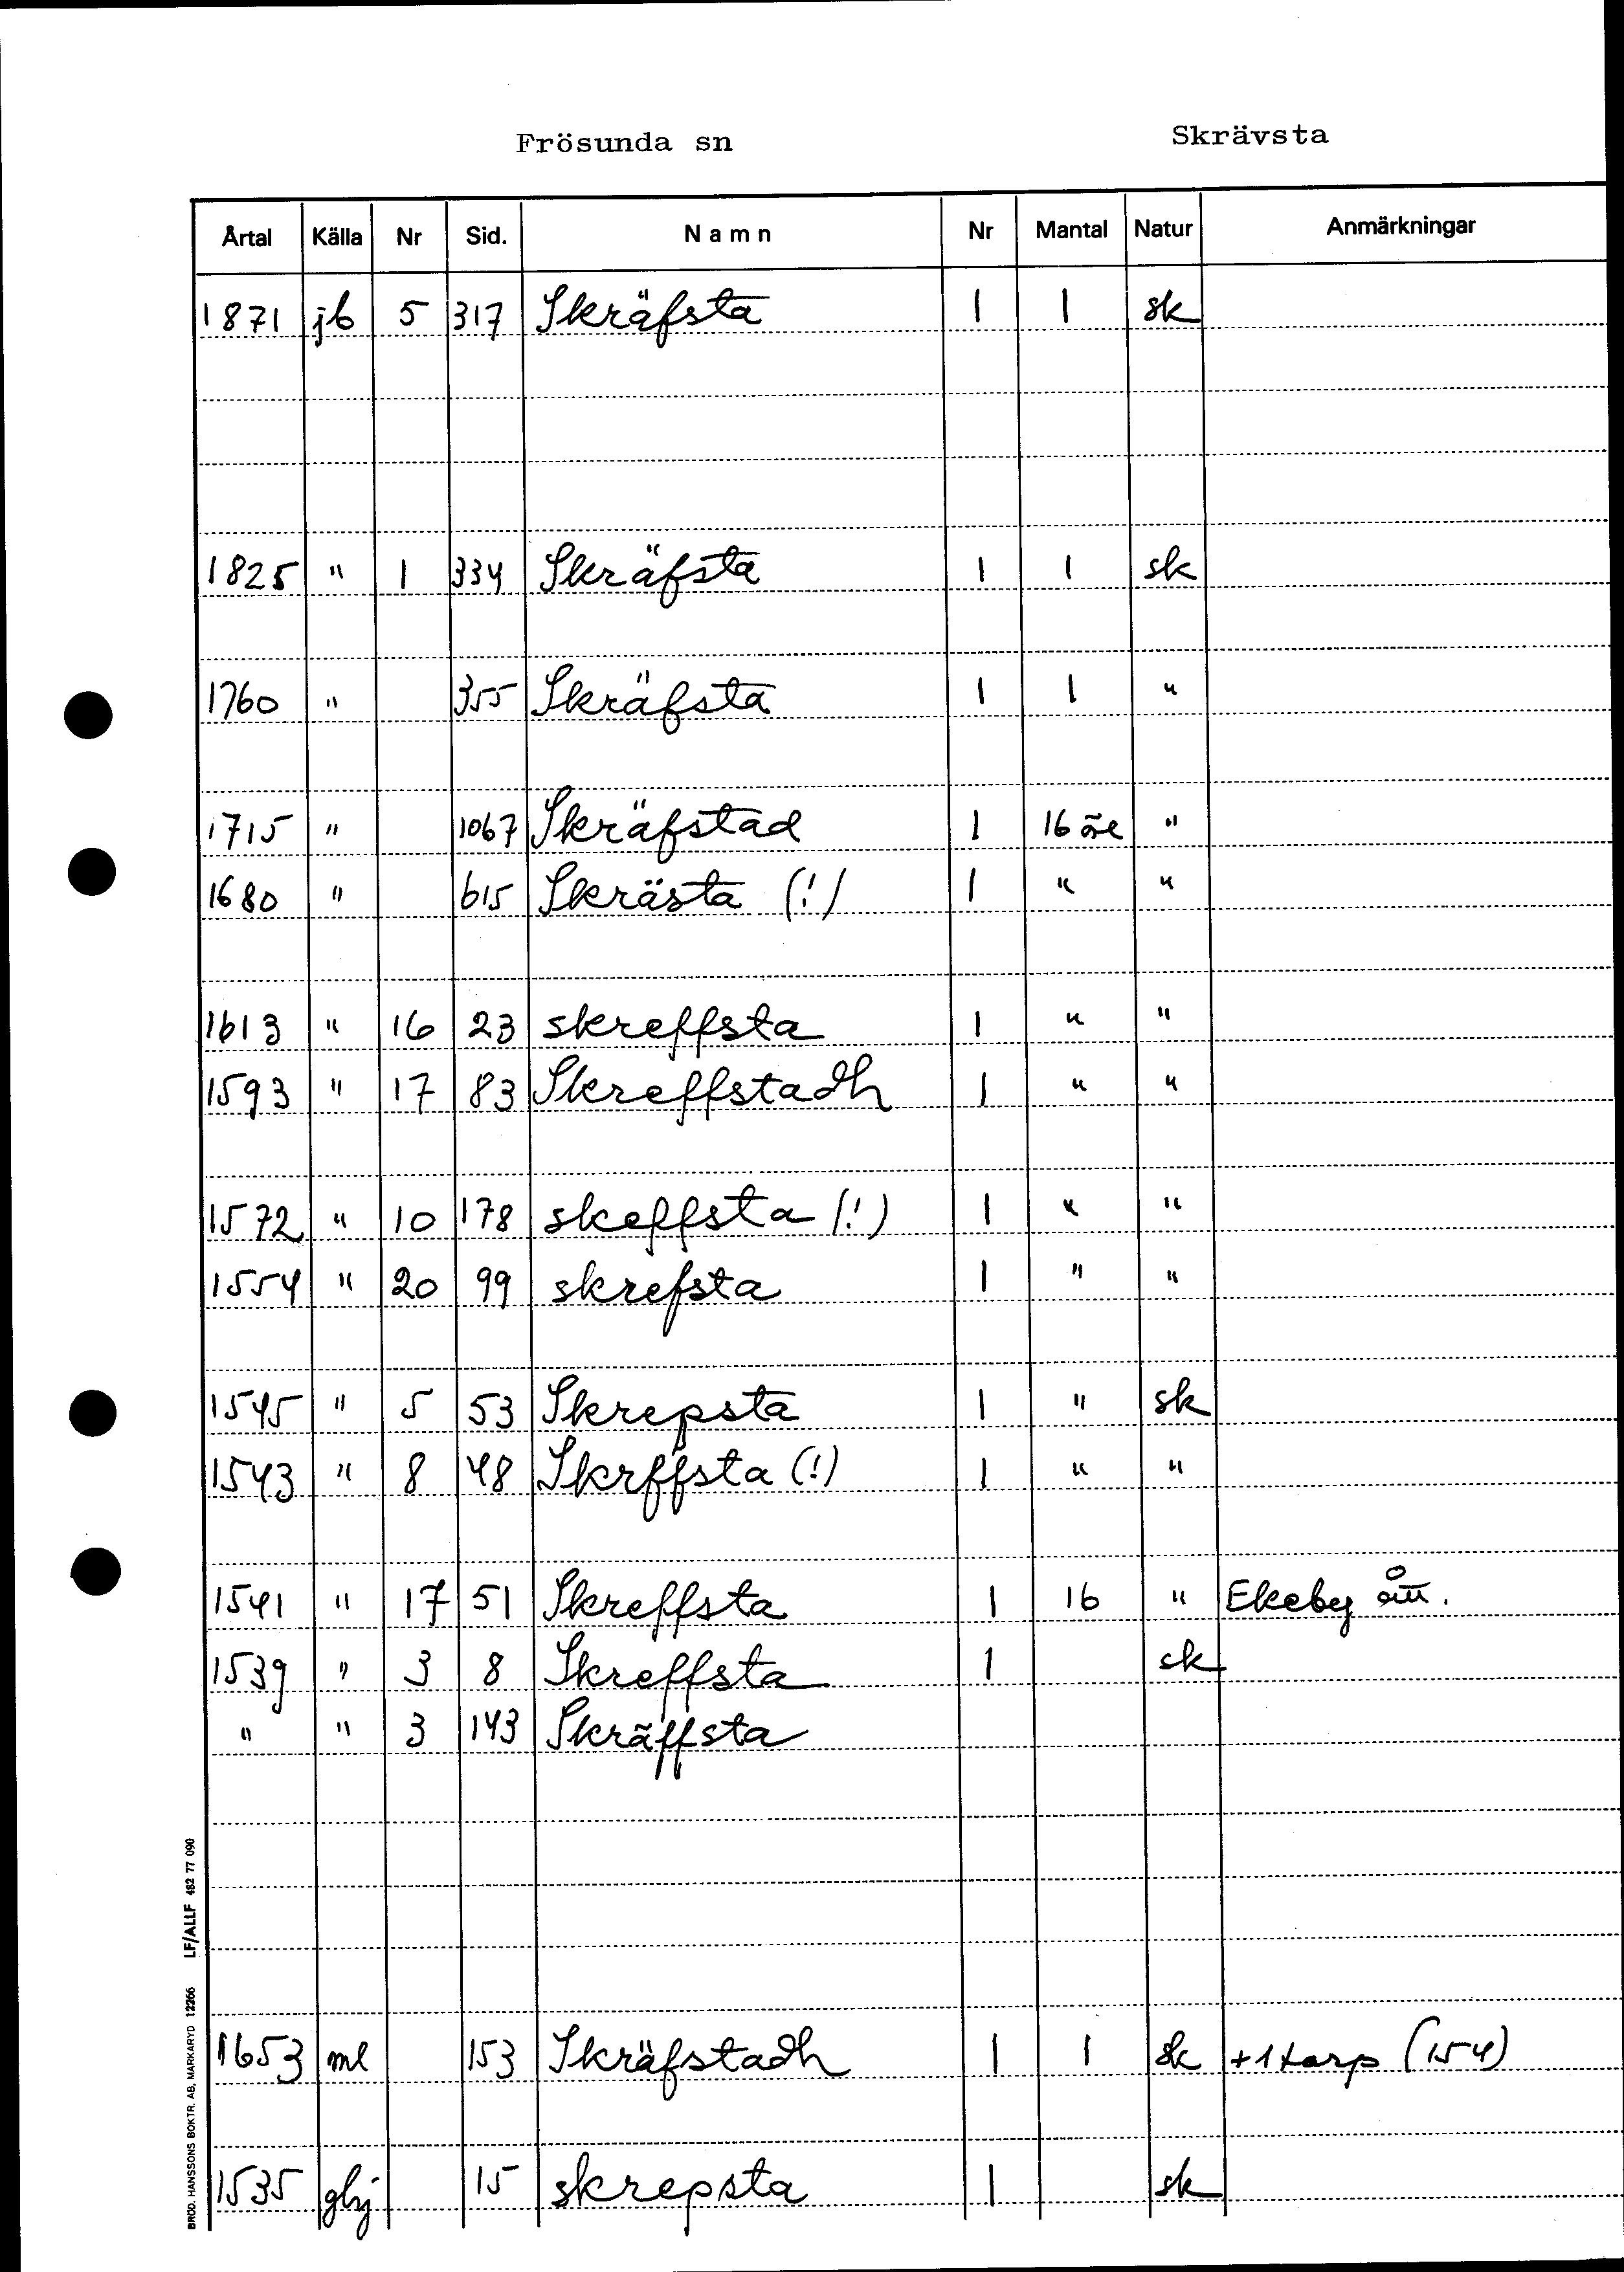 Frösunda sn Skrävsta
Årtal Källa Nr Sid. Namn Nr Mantal Natur Anmärkningar
1871 jb 5 317 Skräfsta 1 1 sk
1825 " 1 334 Skräfsta 1 1 sk
1760 " 355 Skräfsta 1 1 "
1715 " 1067 Skräfstad 1 16 öre "
1680 " 615 Skrästa (!) 1 " "
1613 " 16 23 skreffsta 1 " "
1593 " 17 83 Skreffstadh 1 " "
1572 " 10 178 skeffsta (!) 1 " "
1554 " 20 99 skrefsta 1 " "
1545 " 5 53 Skrepsta 1 " sk
1543 " 8 48 Skrffsta (!) 1 " "
1541 " 17 51 Skreffsta 1 16 " Ekeby
1539 " 3 8 Skreffsta 1 sk
" " 3 143 Skräffsta
1653 ml 153 Skräfstadh 1 1 sk +1 torp (154)
1535 15 skrepsta 1 sk
BRÖD. HANSSONS BOKTR. AB, MARKARYD 12266 LF/ALLF 482 77 090